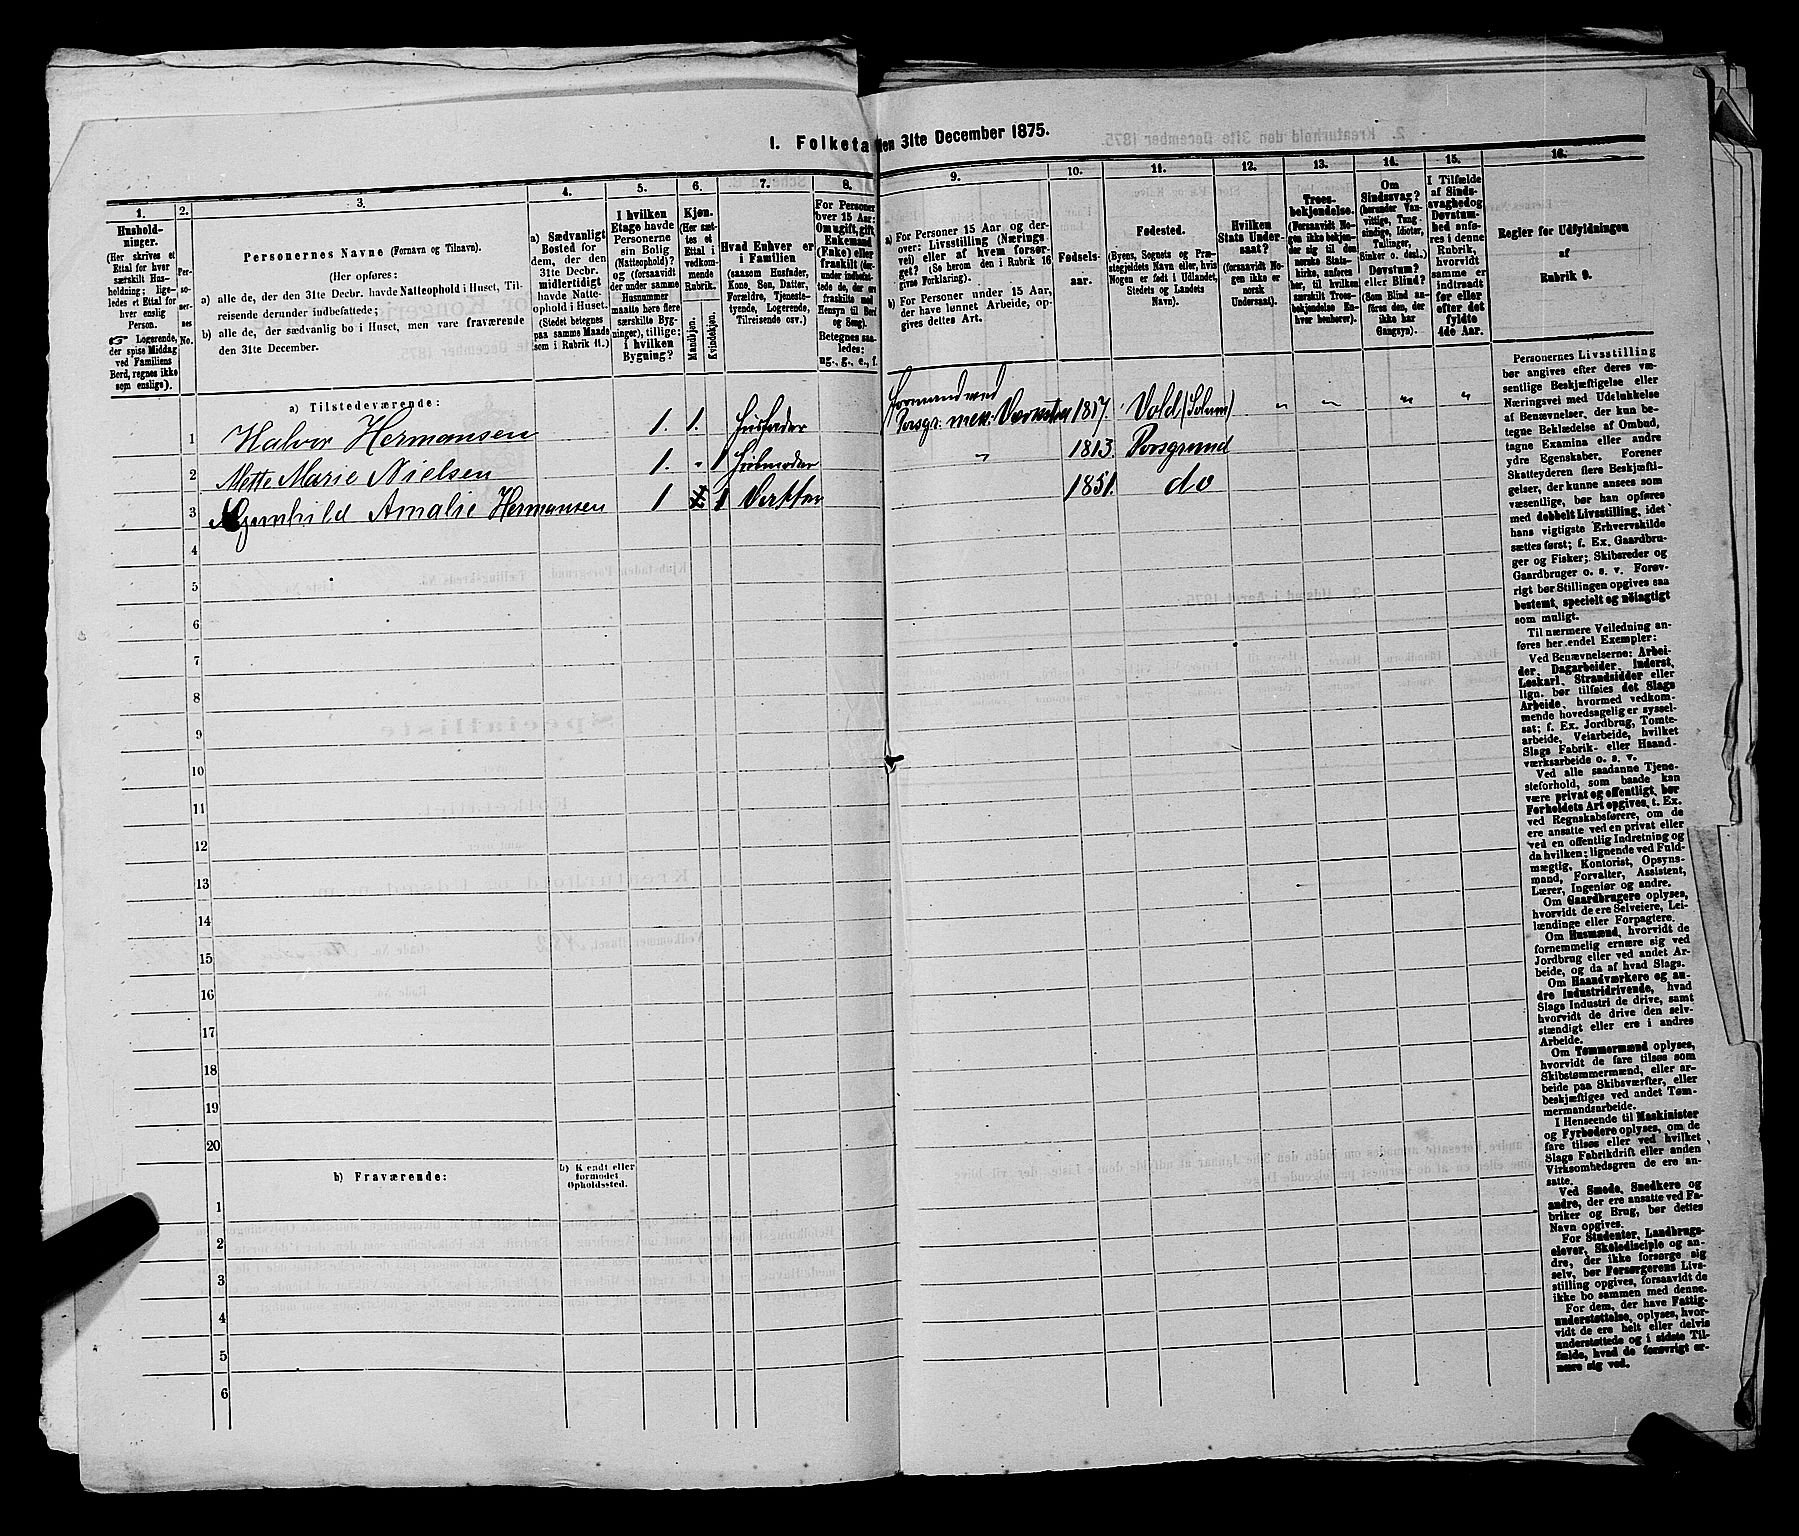 I. Folketa den 31te December 1875.
1.
2.
3.
4.
5.
6.
7.
8.
9.
10.
11.
12.
13.
14.
15.
16.
Husholdninger.
(Her skrives et
Ettal for hver
særskilt Husholdning;
ligeledes
et Ettal for
hver enslig
Person.
☞ Logerende,
der spise Middag
ved Familiens
Bord, regnes ikke
som enslige).
Personernes
No.
Personernes Navne (Fornavn og Tilnavn).
(Her opføres:
a) alle de, der den 31te Decbr. havde Natteophold i Huset, Tilreisende
derunder indbefattede;
b) alle de, der sædvanlig bo i Huset, men vare fraværende
den 31te December.
a) Sædvanligt
Bosted for
dem, der den
31te Decbr.
midlertidigt
havde Natteophold
i Huset.
(Stedet betegnes
paa samme Maade
som i Rubrik 11.)
I hvilken
Etage havde
Personerne
sin Bolig
(Natteophold)?
og (forsaavidt
der under samme
Husnummer
maatte høre flere
særskilte Bygninger),
tillige:
i hvilken
Bygning?
Kjøn.
(Her sættes
et
Ettal i
vedkommende
Rubrik.
Mandkjøn.
Kvindekjøn.
Hvad Enhver er
i Familien
(saasom Husfader,
Kone, Søn, Datter,
Forældre, Tjenestetyende,
Logerende,
Tilreisende osv.)
For Personer
over 15 Aar:
Om ugift, gift,
Enkemand
(Enke) eller
fraskilt
Betegnes saaledes:
ug., g., e., f.
a) For Personer 15 Aar og derover:
Livsstilling (Næringsvei)
eller af hvem forsørget?
(Se herom den i Rubrik 16
givne Forklaring).
b) For Personer under 15 Aar,
der have lønnet Arbeide, opgives
dettes Art.
Fødselsaar.
Fødested.
(Byens, Sognets og Præstegjeldets
Navn eller, hvis
Nogen er født i Udlandet,
Stedets og Landets
Navn).
Hvilken
Stats Undersaat?
(forsaavidt Nogen
ikke er
norsk
Undersaat).
Troesbekjendelse.
(Forsaavidt Nogen
ikke bekjender
sig til den
norske Statskirke,
anføres
her, til hvilken
særskilt Troesbekjendelse
Enhver
henhører).
Om
Sindssvag?
(herunder Vanvittige,
Tungsindige,
Idioter,
Tullinger,
Sinker o. desl.)
Døvstum?
eller Blind?
(Som Blind anføres
den, der
ikke har
Gangsyn).
I Tilfælde
af Sindssvaghed
og
Døvstumhed
anføres
i denne
Rubrik,
hvorvidt
samme er
indtraadt
før eller
efter det
fyldte
4de Aar.
Regler for Udfyldningen
af
Rubrik 9.
a) Tilstedeværende:
1 Halvor Hermansen 1. 1. Husfader Formand ved
Porsgr. mek: Værksted 1817. Vold (Solum) " " " "
2 Mette Marie Nielsen 1. " 1 Husmoder " 1813. Porsgrund
3 Gunhild Amalie Hermansen 1 1 Datter 1851. do
4
5
6
7
8
9
10
11
12
13
14
15
16
17
18
19
20
b) Fraværende:
b) Kjendt eller
formodet
Opholdssted.
1
2
3
4
5
6
Personernes Livsstilling
bør angives efter deres væsentlige
Beskjæftigelse eller
Næringsvei med Udelukkelse
af Benævnelser, der kun betegne
Beklædelse af Ombud,
tagne Examina eller andre
ydre Egenskaber. Forener
Skatteyderen flere Beskjæftigelser,
der kunne ansees som
væsentlige, bør han opføres
med dobbelt Livsstilling, idet
hans vigtigste Erhvervskilde
sættes først; f. Ex. Gaardbruger
og Fisker; Skibsreder og
Gaardbruger o. s. v. Forøvrigt
bør Stillingen opgives saa
bestemt, specielt og nøiagtigt
som muligt.
Til nærmere Veiledning anføres
her endel Exempler:
Ved Benævnelserne: Arbeider,
Dagarbeider, Inderst,
Løskarl, Strandsidder eller
lign. bør tilføies det Slags
Arbeide, hvormed vedkommende
hovedsagelig er sysselsat;
f. Ex. Jordbrug, Tomtearbeide,
Veiarbeide, hvilket
Slags Fabrik- eller Haandværksarbeide
o. s. v.
Ved alle saadanne Tjenesteforhold,
som baade kan
være privat og offentligt, bør
Forholdets Art opgives, t. Ex.
ved Regnskabsførere, om de
ere ansatte ved en privat eller
ved en offentlig Indretning og
da hvilken; lignende ved Fuldmægtig,
Kontorist, Opsynsmand,
Forvalter, Assistent,
Lærer, Ingeniør og andre.
Om Gaardbrugere oplyses,
hvorvidt de ere Selveiere, Leilændinge
eller Forpagtere.
Om Husmænd, hvorvidt de
fornemmelig ernære sig ved
Jordbrug eller ved andet Arbeide,
og da af hvad Slags.
Om Haandværkere og andre
Industridrivende, hvad
Slags Industri de drive, samt
hvorvidt de drive den selvstændigt
eller ere i andres
Arbeide.
Om Tømmermænd oplyses,
hvorvidt de fare tilsøs som
Skibstømmermænd, eller arbeide
paa Skibsværfter, eller
beskjæftiges ved andet Tømmermandsarbeide.
I Henseende til Maskinister
og Fyrbødere oplyses, om de
fare tilsøs eller ved hvilket
Slags Fabrikdrift eller anden
Virksomhedsgren de ere ansatte.
Ved Smede, Snedkere og
andre, der ere ansatte ved Fabriker
og Brug, bør dettes
Navn opgives.
For Studenter, Landbrugselever,
Skoledisciple og andre,
der ikke forsørge sig
selv, bør Forsørgerens Livsstilling
opgives, forsaavidt de
ikke bo sammen med denne.
For dem, der have Fattigunderstøttelse,
oplyses, hvorvidt
de ere helt eller delvis
understøttede og i sidste Tilfælde,
hvad de forøvrigt ernære
sig ved.